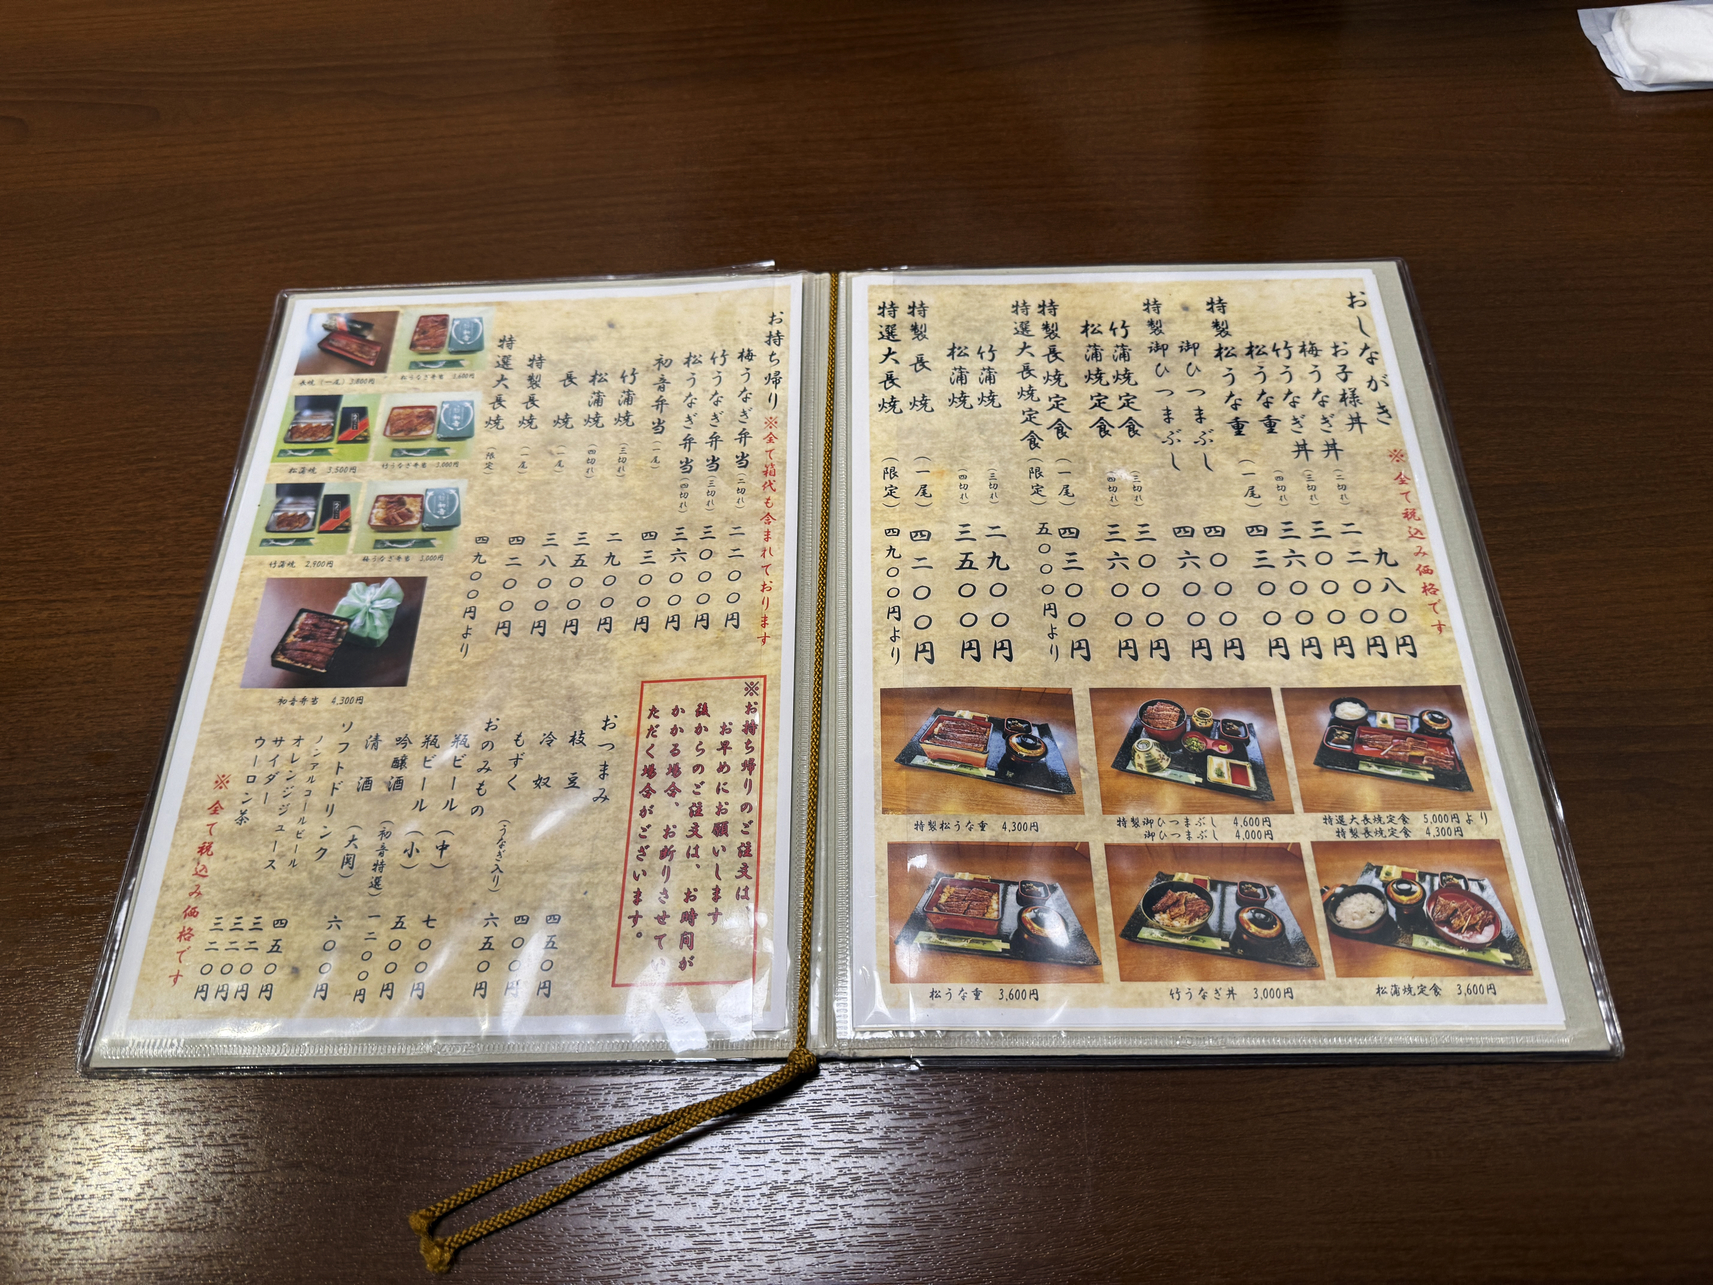 おしながき
※全て税込み価格です
お子様丼 九八〇円
梅うなぎ丼 (二切れ) 二二〇〇円
竹うなぎ丼 (三切れ) 三〇〇〇円
松うな重 (四切れ) 三六〇〇円
特製松うな重 (一尾) 四三〇〇円
御ひつまぶし 四〇〇〇円
特製御ひつまぶし 四六〇〇円
竹蒲焼定食 (三切れ) 三〇〇〇円
松蒲焼定食 (四切れ) 三六〇〇円
特製長焼定食 (一尾) 四三〇〇円
特選大長焼定食 (限定) 五〇〇〇円より
竹蒲焼 (三切れ) 二九〇〇円
松蒲焼 (四切れ) 三五〇〇円
特製長焼 (一尾) 四二〇〇円
特選大長焼 (限定) 四九〇〇円より
特製松うな重 4,300円
特製御ひつまぶし 4,600円
御ひつまぶし 4,000円
特選大長焼定食 5,000円より
特製長焼定食 4,300円
松うな重 3,600円
竹うなぎ丼 3,000円
松蒲焼定食 3,600円
お持ち帰り ※全て箱代も含まれております
梅うなぎ弁当 (二切れ) 二二〇〇円
竹うなぎ弁当 (三切れ) 三〇〇〇円
松うなぎ弁当 (四切れ) 三六〇〇円
初音弁当 (一尾) 四三〇〇円
竹蒲焼 (三切れ) 二九〇〇円
松蒲焼 (四切れ) 三五〇〇円
長焼 (一尾) 三八〇〇円
特製長焼 (一尾) 四二〇〇円
特選大長焼 (限定) 四九〇〇円より
長焼(一尾) 3,800円
松うなぎ弁当 3,600円
松蒲焼 3,500円
竹うなぎ弁当 3,000円
竹蒲焼 2,900円
梅うなぎ弁当
初音弁当 4,300円
※お持ち帰りのご注文は、
お早めにお願いします
後からのご注文は、お時間が
かかる場合、お断りさせてい
ただく場合がございます。
おつまみ
枝豆 四五〇円
冷奴 四〇〇円
もずく (うなぎ入り) 六五〇円
おのみもの
瓶ビール (中) 七〇〇円
瓶ビール (小) 五〇〇円
吟醸酒 (初音特選) 一二〇〇円
清酒 (大関) 六〇〇円
ソフトドリンク
ノンアルコールビール 四五〇円
オレンジジュース 三二〇円
サイダー 三二〇円
ウーロン茶 三二〇円
※全て税込み価格です